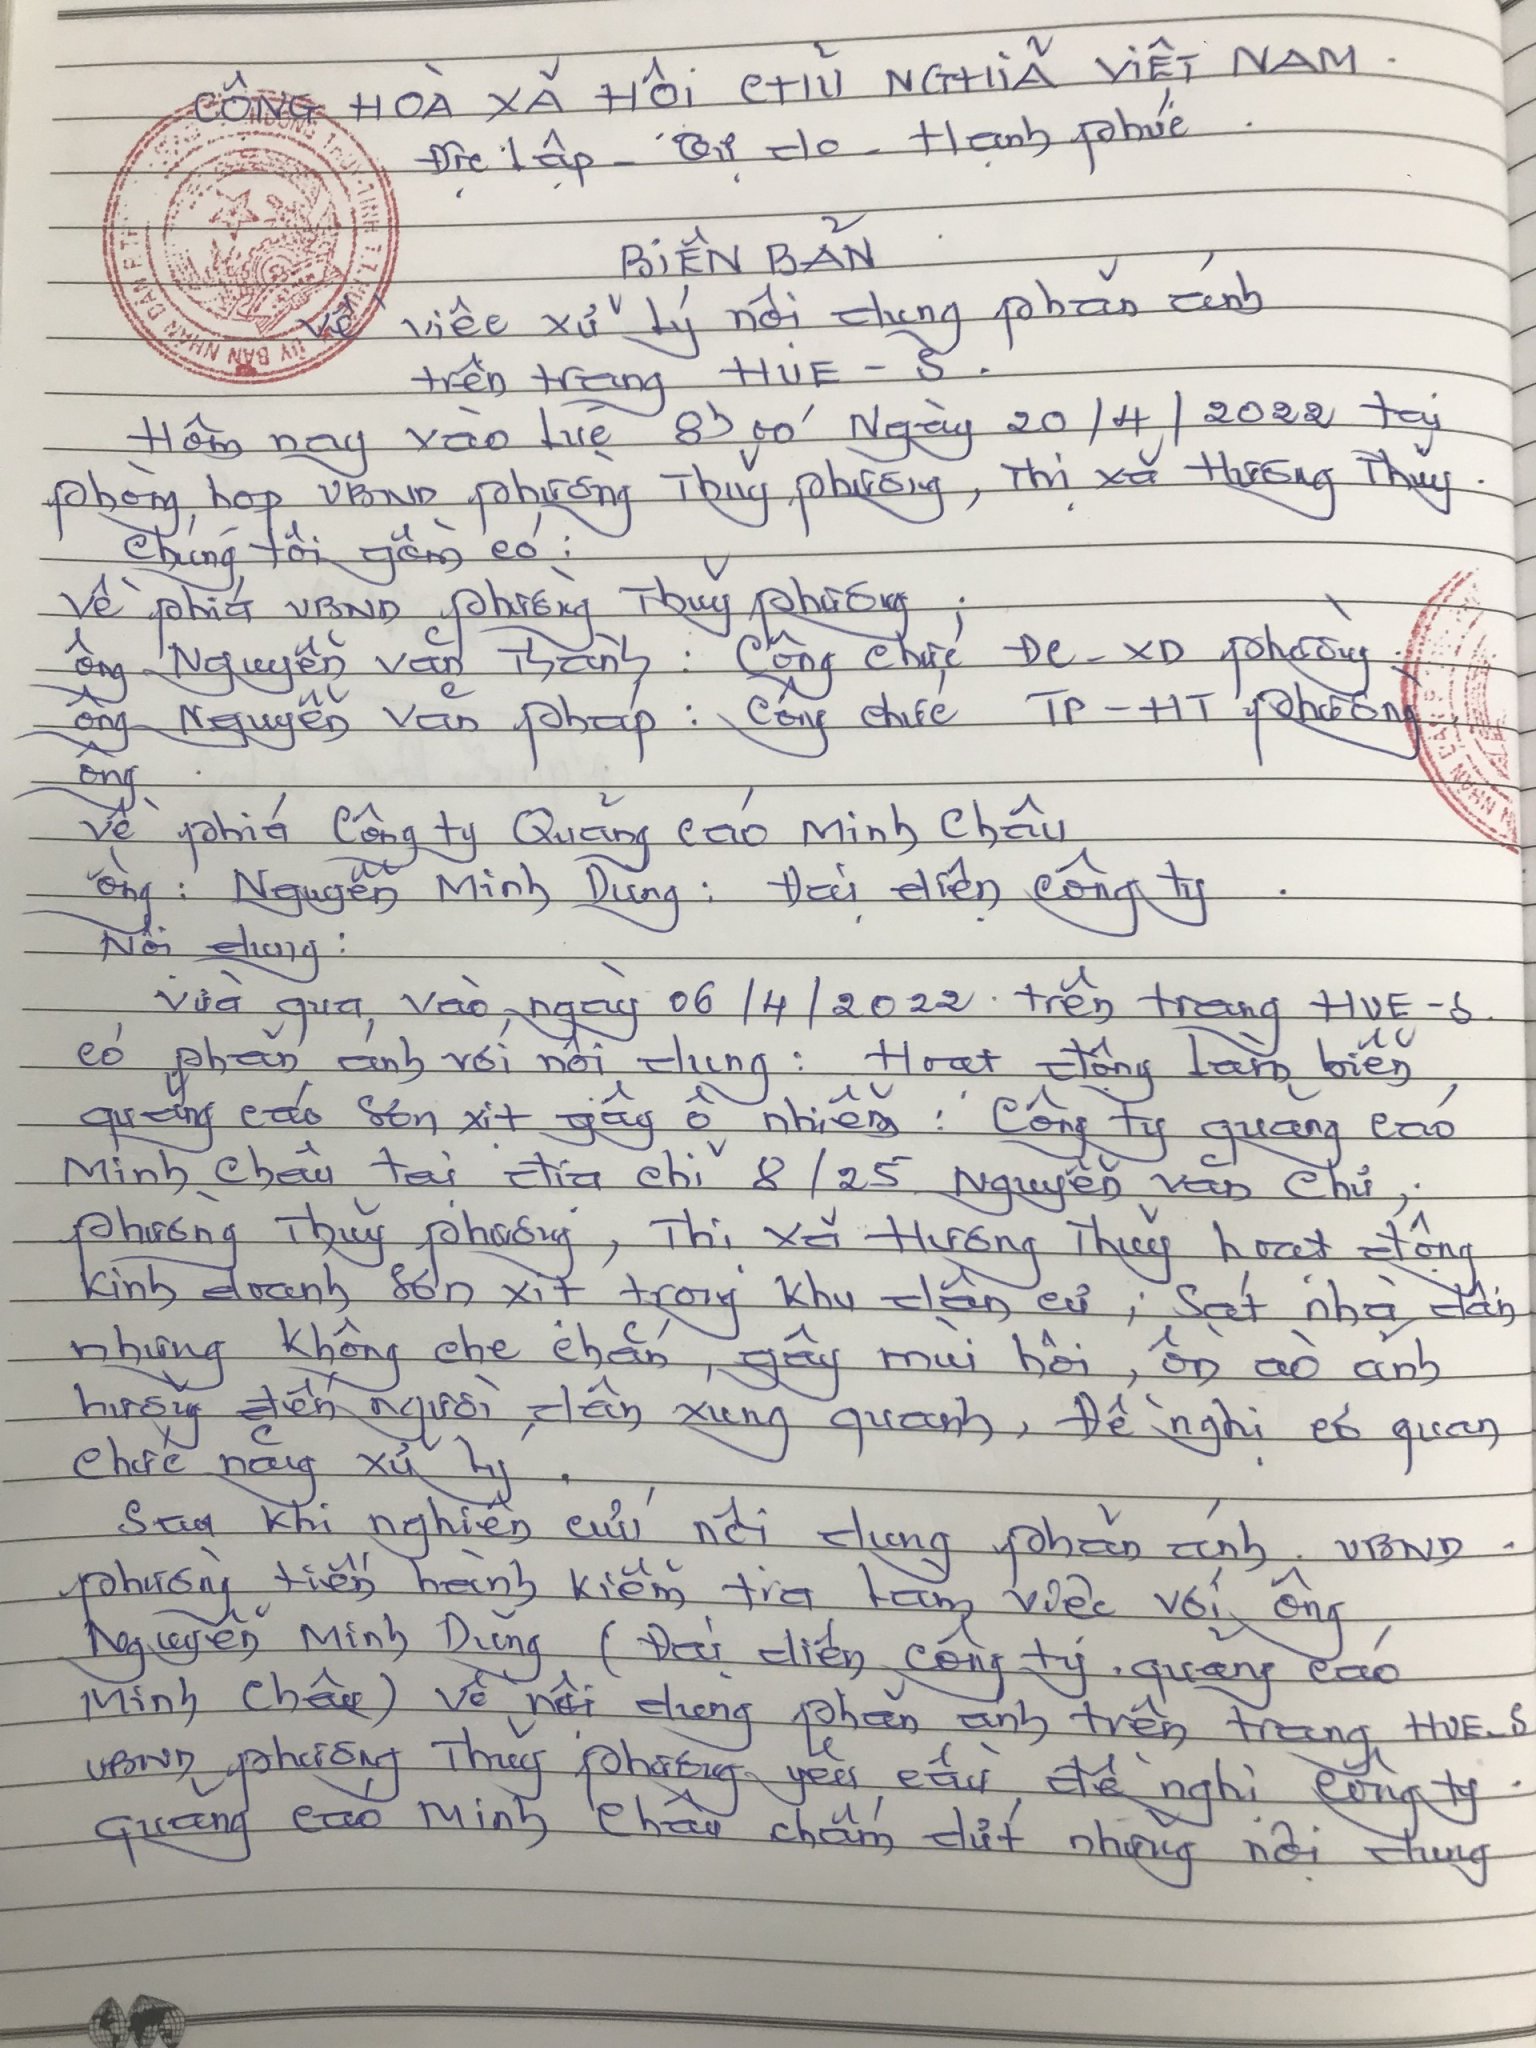 CỘNG HOÀ XÃ HỘI CHỦ NGHĨA VIỆT NAM.
Độc lập - Tự do - Hạnh phúc.
BIÊN BẢN
Về việc xử lý nội dung phản ánh
trên trang HUE-S.
Hôm nay vào lúc 8h00' Ngày 20/4/2022 tại
phòng họp UBND phường Thuỷ phương, Thị xã Hương Thuỷ.
Chúng tôi gồm có:
Về phía UBND phường Thuỷ phương;
ông Nguyễn Văn Thành: Công chức ĐC-XD phường.
ông Nguyễn Văn Pháp: Công chức TP-HT phường.
ông
Về phía Công ty Quảng cáo Minh Châu
ông: Nguyễn Minh Dũng: Đại diện công ty.
Nội dung:
Vừa qua, vào ngày 06/4/2022. trên trang HUE-S.
có phản ánh với nội dung: Hoạt động làm biển
quảng cáo sơn xịt gây ô nhiễm: Công ty quảng cáo
Minh Châu tại địa chỉ 8/25 Nguyễn Văn Chư,
phường Thuỷ phương, Thị xã Hương Thuỷ hoạt động
kinh doanh sơn xịt trong khu dân cư, sát nhà dân
nhưng không che chắn, gây mùi hôi, ồn ào ảnh
hưởng đến người dân xung quanh, Đề nghị cơ quan
chức năng xử lý.
Sau khi nghiên cứu nội dung phản ánh. UBND
phường tiến hành kiểm tra làm việc với ông
Nguyễn Minh Dũng (Đại diện công ty quảng cáo
Minh Châu) về nội dung phản ánh trên trang HUE-S
UBND phường Thuỷ phương yêu cầu, đề nghị công ty
quảng cáo Minh Châu chấm dứt những nội dung